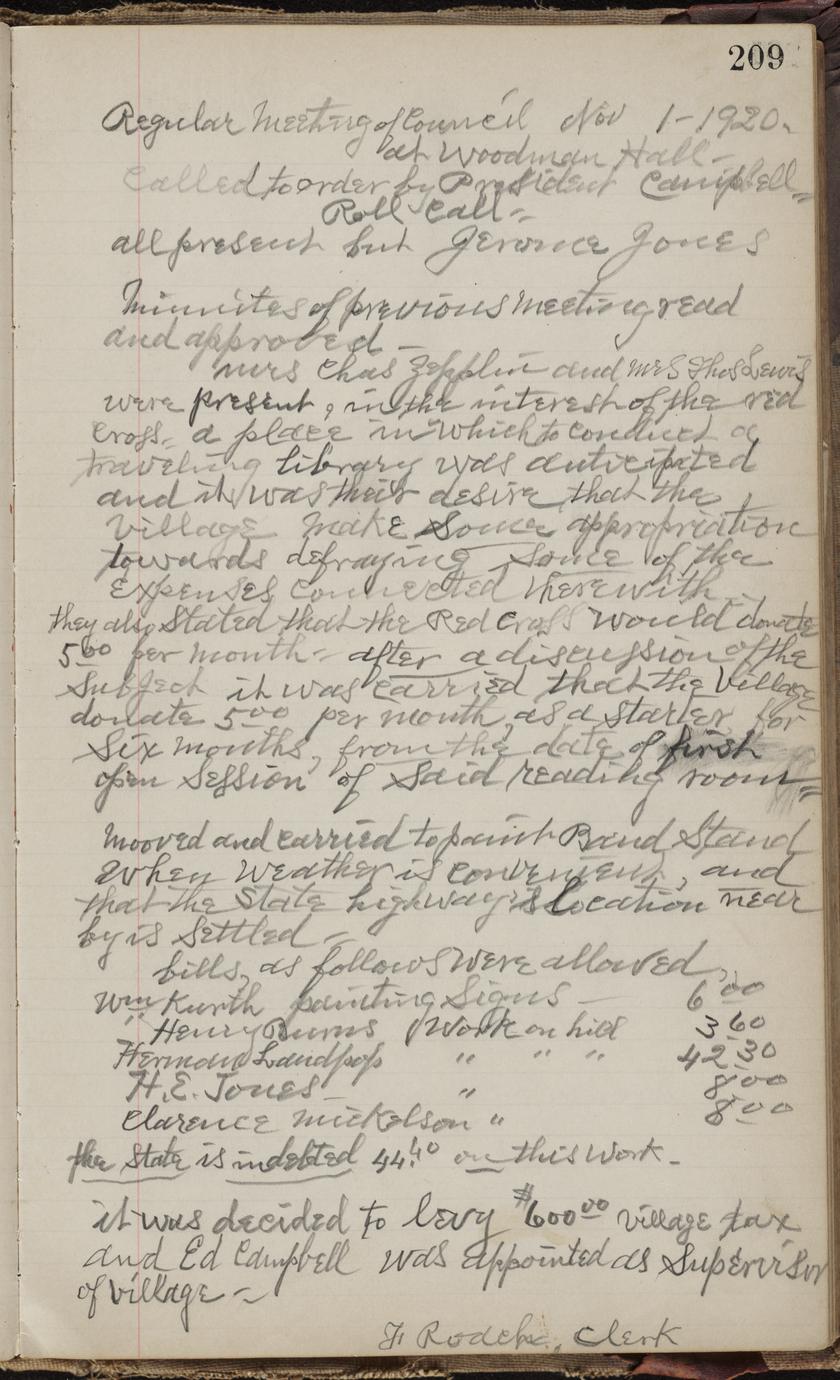 209
Regular Meeting of Council Nov 1-1920.
at Woodman Hall -
Called to order by President Campbell =
Roll Call =
all present but Jerome Jones
Minnites of previous meeting read
and approved -
Mrs Chas Zepplin and Mrs Thos Lewis
were present, in the interest of the red
Cross, a place in which to conduct a
traveling library was anticipated
and it was their desire that the
Village make some appropriation
towards defraying some of the
Expenses connected therewith
they also Stated that the Red Cross would donate
5 00 per month - after a discussion of the
Subject it was carried that the Village
donate 5 00 per month, as a starter for
Six months, from the date of first
open Session of said reading room =
Mooved and carried to paint Band Stand
when weather is convenient, and
that the State highway's location near
by is settled -
bills, as follows were allowed,
Wm Kurth painting Signs - 6 00
Henry Burns Work on hill 3 60
Herman " " " 42 30
H.E. Jones - " 8 00
Clarence Mickelson " 8 00
the State is indebted 44.40 on this work -
it was decided to levy $600 00 Village tax
and Ed Campbell was appointed as Supervisor
of village -
Clerk